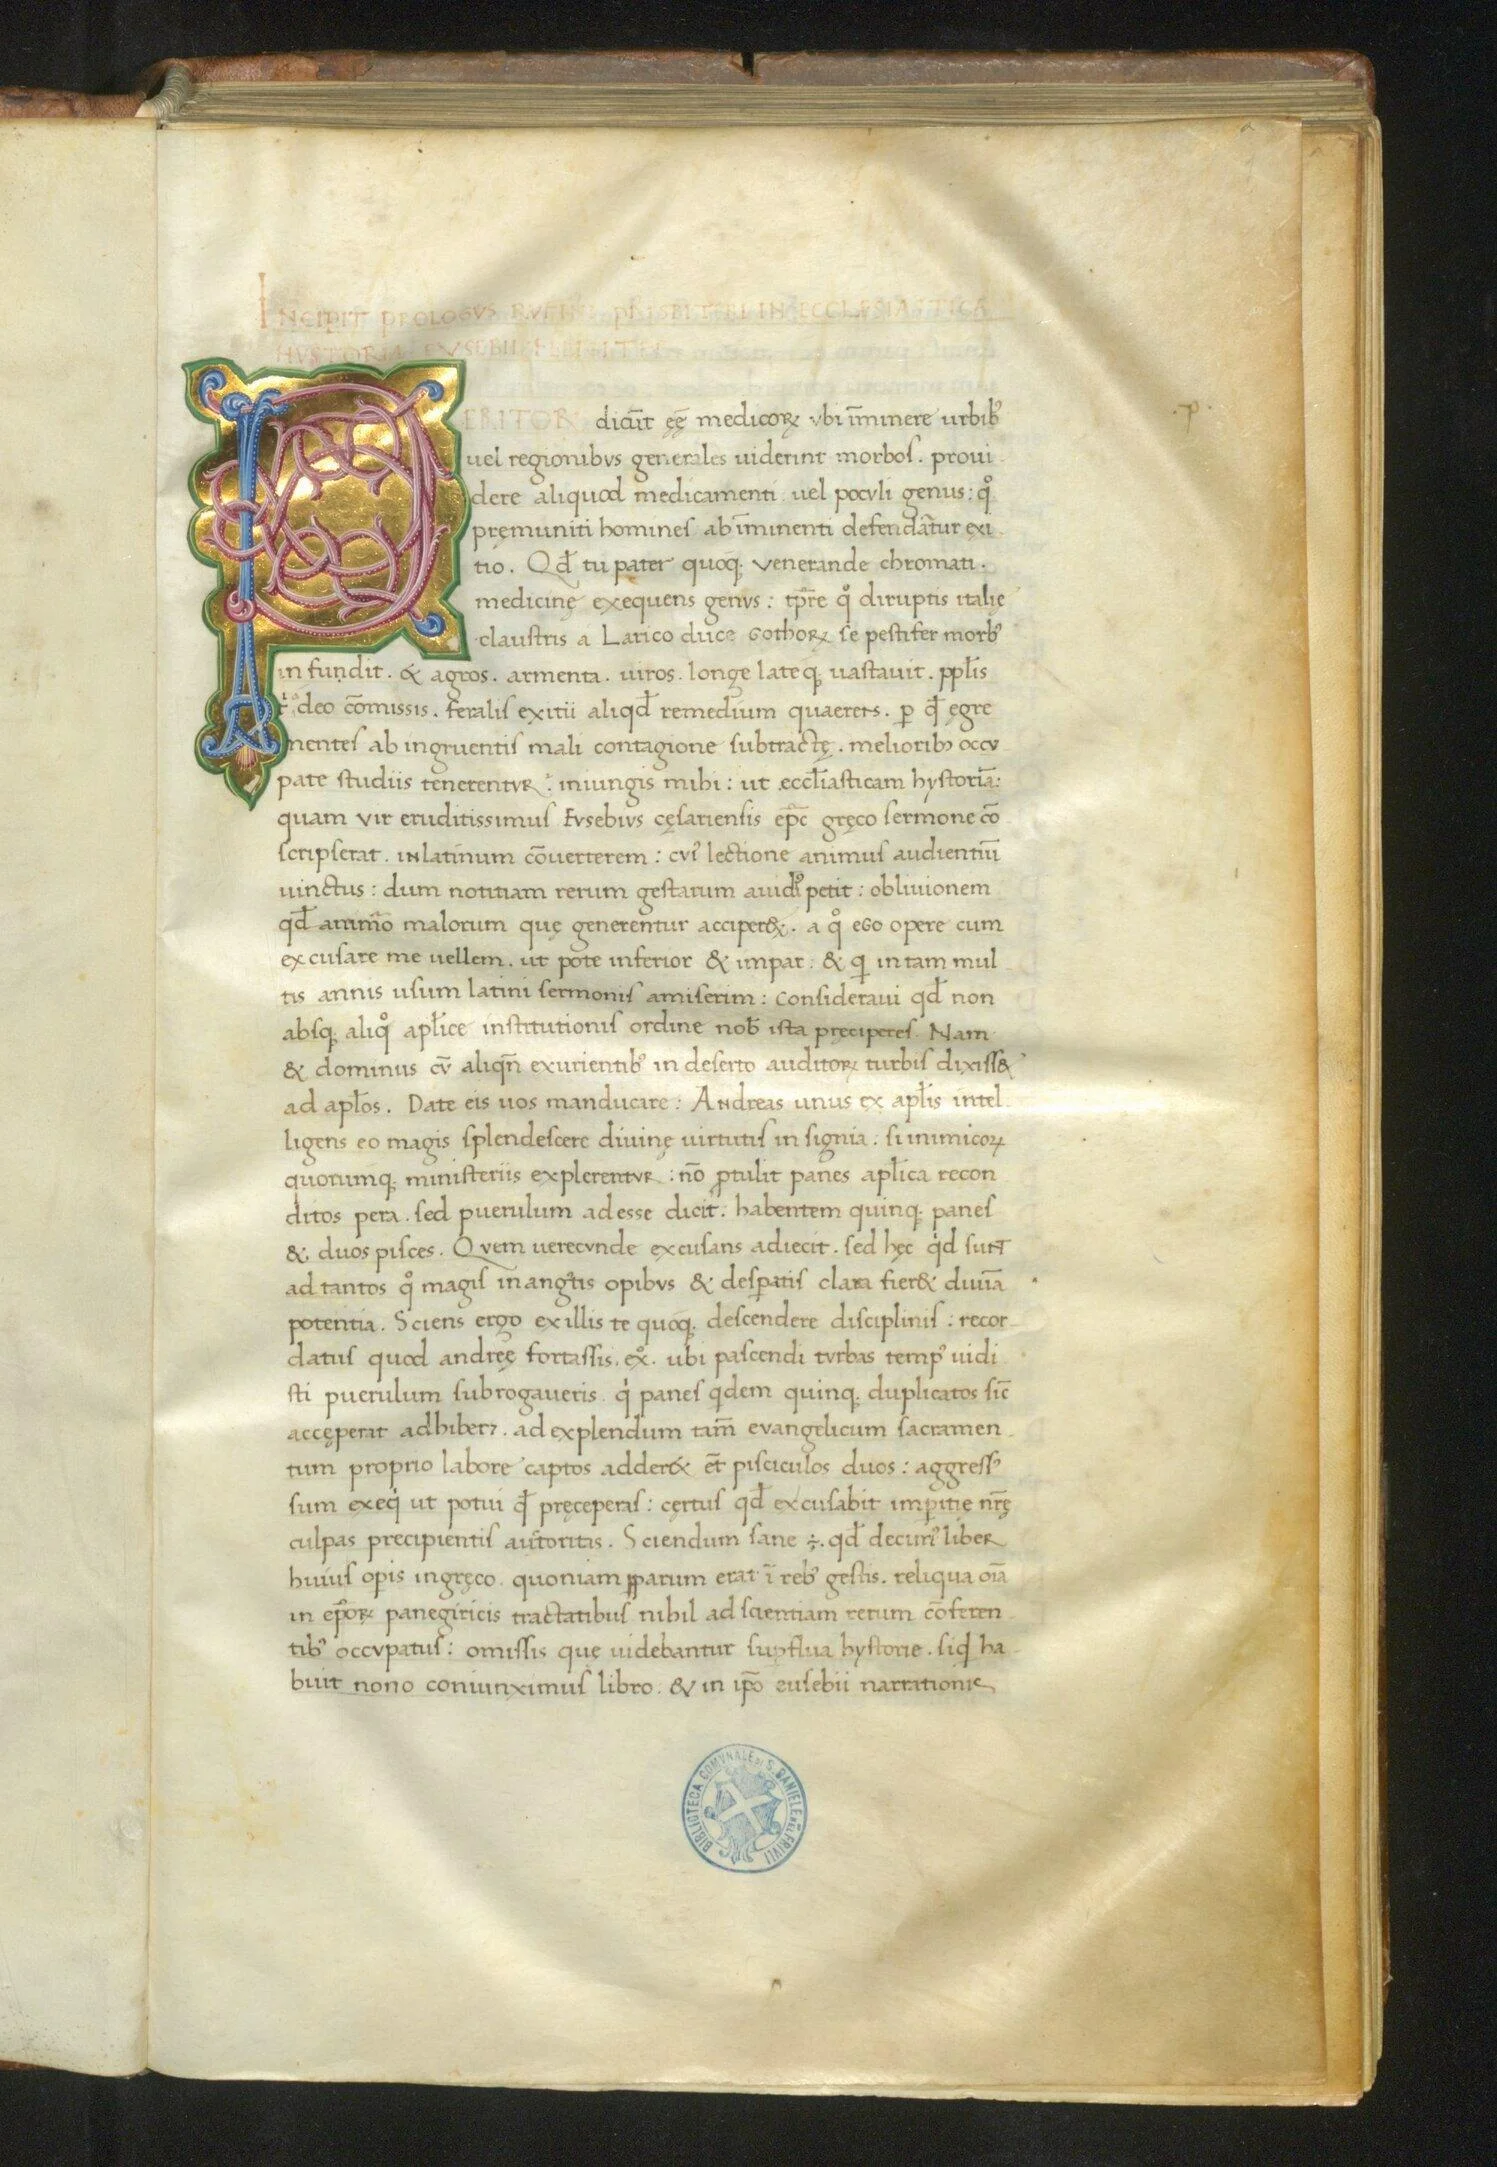 INCIPIT PROLOGVS RVFINI PRISBITERI IN ECCLESIASTICA
HVSTORIA EVSEBII
PERITOR dicūt ęę medicoꝝ vbi īminere urbib᾽
uel regionibvs generales uiderint morbos. proui
dere aliquod medicamenti uel pocvli genus: qͦ
pręmuniti homines ab īminenti defendātur exi
tio. Qđ tu pater quoq; venerande chromati.
medicinę exequens genvs: tp̄re qͦ diruptis italię
claustris a Larico duce Gothoꝝ se pestifer morb᾽
in fundit. & agros. armenta. uiros. longe lateq; uastauit. ppl̄is
deo cōmissis. feralis exitii aliqđ remedium quaerens. ꝑ qđ ęgre
mentes ab ingruentis mali contagione subtractę. meliorib᾽ occv
pate studiis tenerentvr: iniungis mihi: ut eccl̄iasticam hystoriā:
quam vir eruditissimus Eusebivs cęsariensis ep̄c gręco sermone cō
scripserat. in latinum cōuerterem: cvi᾽ lectione animus audientiū
uinctus: dum notitiam rerum gestarum auidi᾽ petit: obliuionem
qđ animō malorum quę generentur acciper&. a qͦ ego opere cum
excusare me uellem. ut pote inferior & impar: & qi in tam mul
tis annis usum latini sermonis amiserim: consideraui qđ non
absq; aliqͦ apl̄ice institutionis ordine nob̄ ista pręciperes. Nam
& dominus cv̄ aliqn̄ exurientib᾽ in deserto auditoꝝ turbis dixiss&
ad apl̄os. Date eis uos manducare: Andreas unus ex apl̄is intel
ligens eo magis splendescere diuinę uirtutis in signia. si inimicoꝝ
quorumq; ministeriis explerentvr: nō ꝓtulit panes apl̄ica recon
ditos pera. sed puerulum adesse dicit. habentem quinq; panes
& duos pisces. Qvem uerecvnde excusans adiecit. sed hęc qid sunt
ad tantos qͦ magis in angꝰtis opibvs & despatis clara fier& diuīa
potentia. Sciens ergo ex illis te quoq; descendere disciplinis: recor
datus quod andreę fortassis. exͦ. ubi pascendi tvrbas temp᾽ uidi
sti puerulum subrogaueris. qi panes qdem quinq; duplicatos sic̄
accęperat adhiberꝫ. ad explendum tam̄ evangelicum sacramen
tum proprio labore captos adder& et̄ pisciculos duos: aggress᾽
sum exeqi ut potui qđ pręceperas: cęrtus qđ excusabit imꝑitię nr̄ę
culpas precipientis autoritas. Sciendum sane ÷. qđ decim᾽ liber
huius opis in gręco. quoniam ꝑparum erat ī reb᾽ gestis. reliqua oīa
in ep̄oꝝ panegiricis tractatibus nihil ad scientiam rerum cōferen
tib᾽ occvpatus: omissis quę uidebantur suꝑflua hystorie. siqd ha
buit nono coniunximus libro. & in ip̄o eusebii narrationie
.p.
BIBLIOTECA COMVNALE DI S. DANIELE NEL FRIVLI